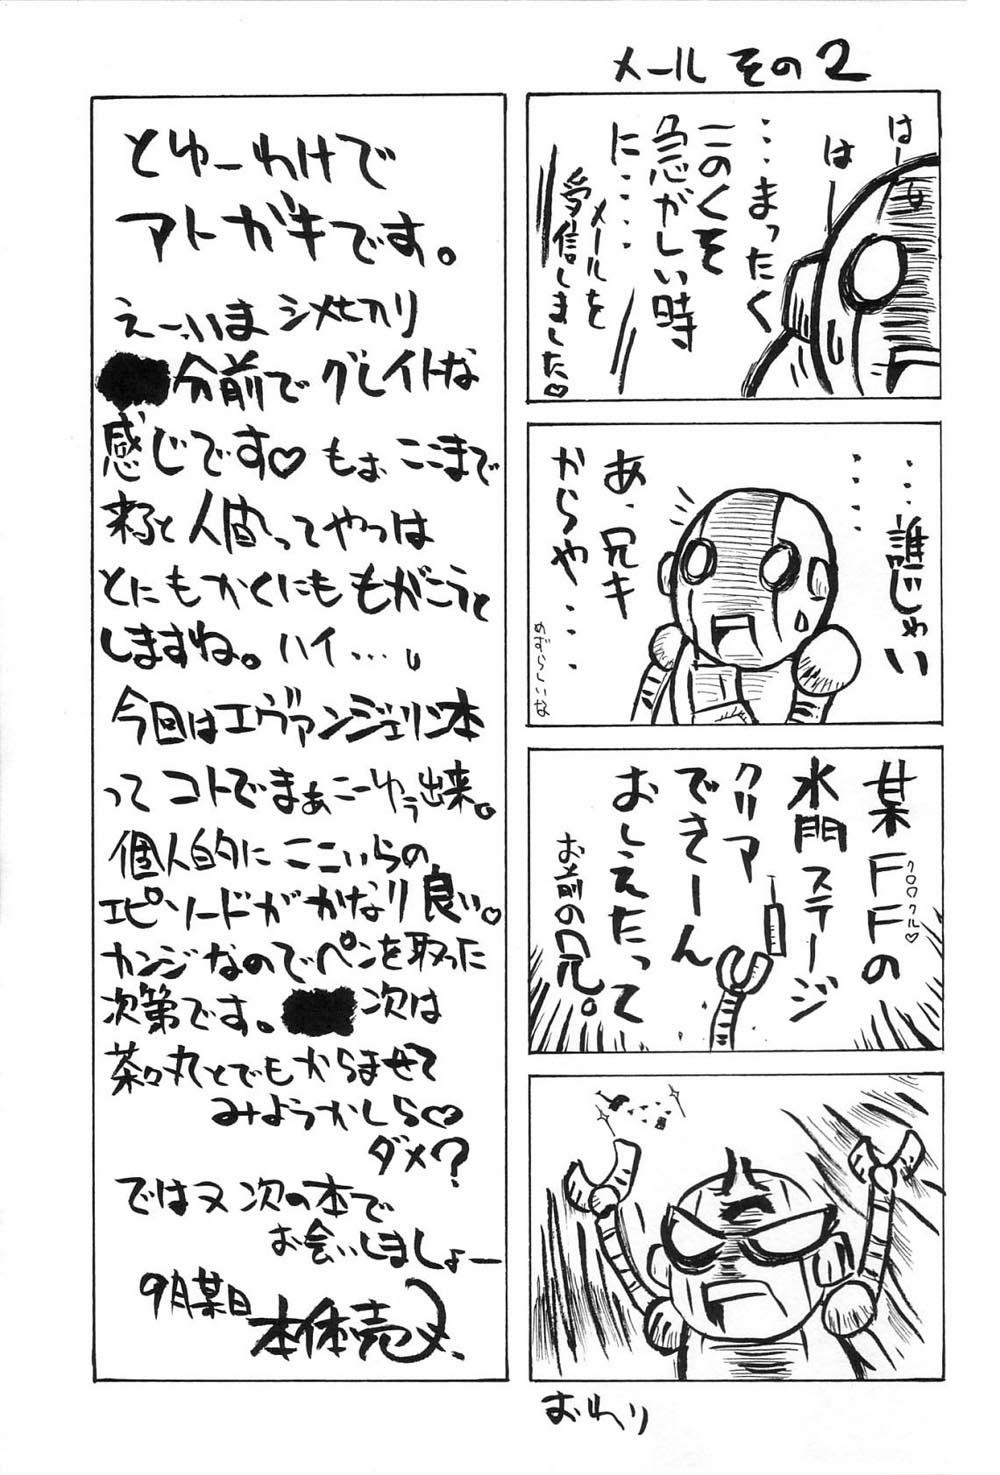 メール その2
はー
はー
・・・まったく
このくそ
急がしい時
に・・・・
メールを
受信しました♡
・・・・・・・
誰じゃい
あ、兄キ
からや・・・・
めずらしいな
某FFの
クロロクル♡
水門ステージ
クリア
できーん
おしえたって
お前の兄。
おわり
とゆーわけで
アトガキです。
えーっいま シメセカリ
分前で グレイトな
感じです♡ もぉ ここまで
来ると 人間ってやつは
とにもかくにも もがこうと
しますね。ハイ…。
今回はエヴァンジェリン本
って コトでまぁこーゆう出来。
個人的に ここいらの
エピソードが かなり良い。
カンジなので ペンを取った
次第です。 次は
茶々丸とでもからませて
みようかしら♡
ダメ?
ではヌ 次の本で
お会いしましょー
9月某日
本体売ヌ、